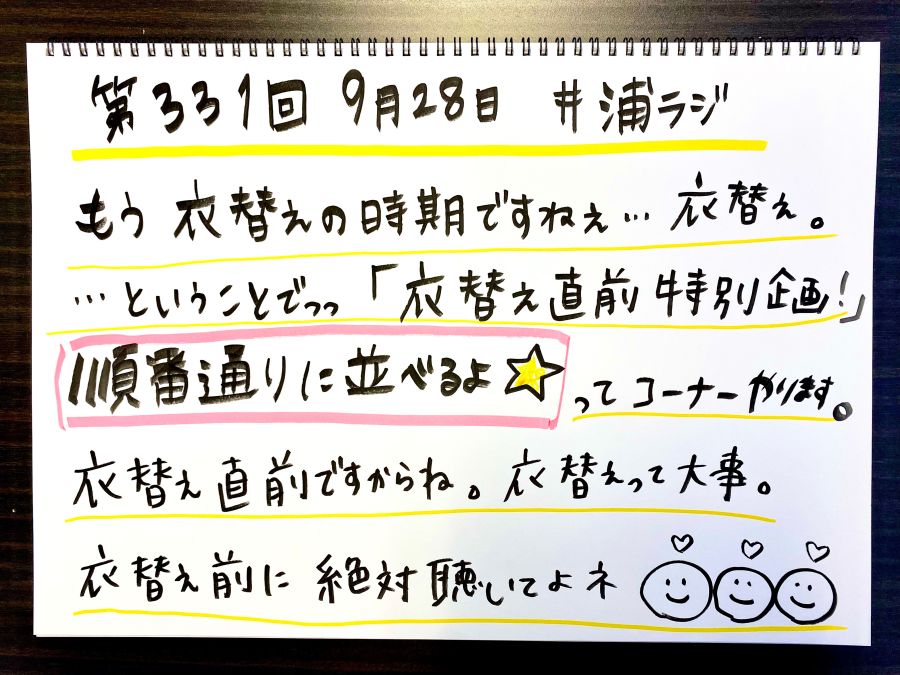 第331回 9月28日 #浦ラジ
もう 衣替えの時期ですねぇ… 衣替え。
…ということでっっ「衣替え直前特別企画!」
順番通りに並べるよ☆ってコーナーやります。
衣替え直前ですからね。衣替えって大事。
衣替え前に 絶対聴いてよネ